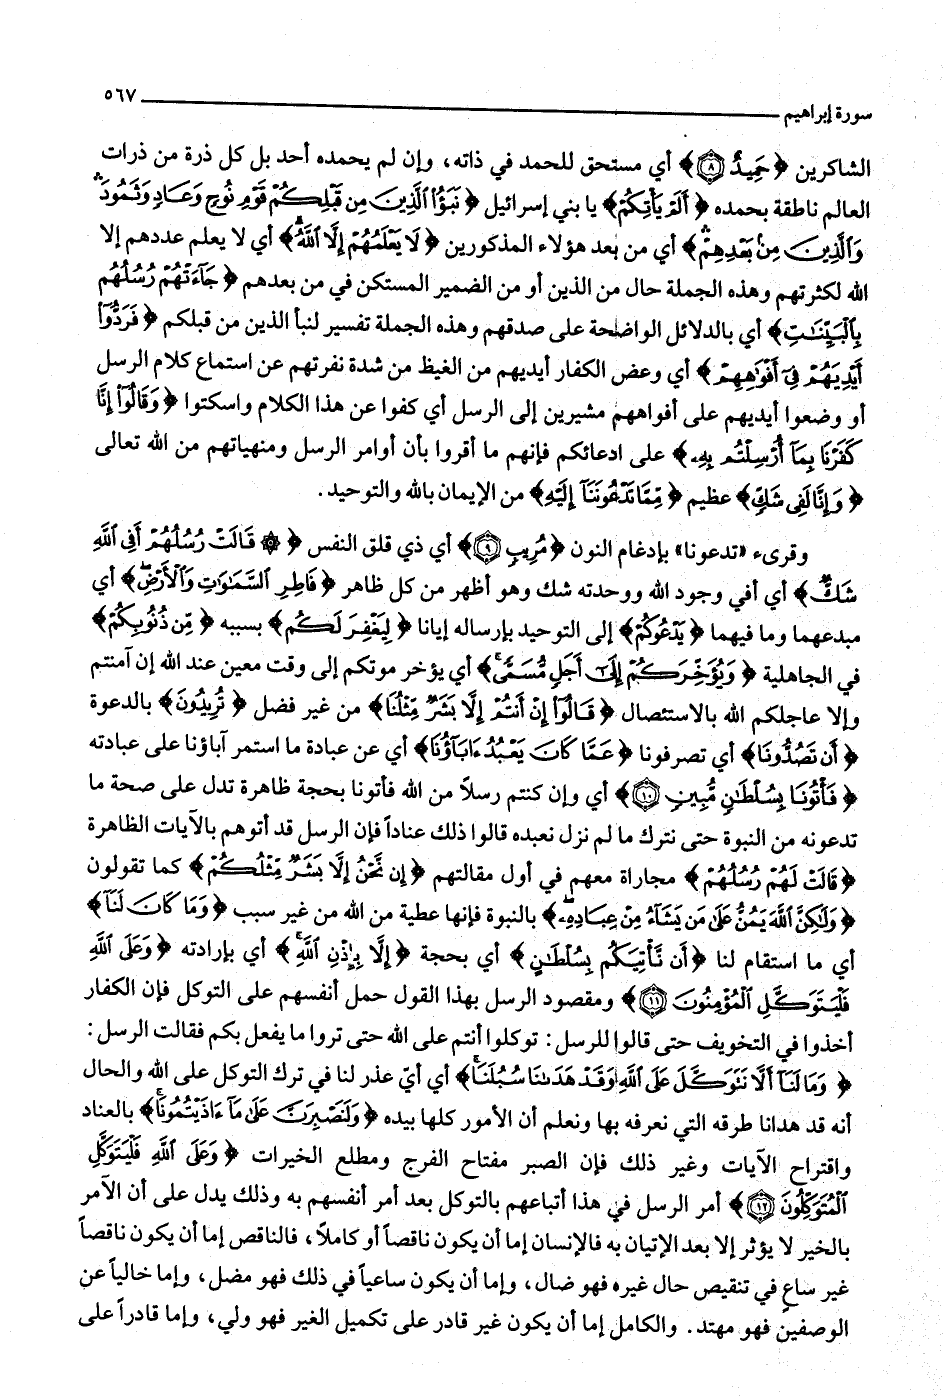 سورة إبراهيم ٥٦٧
الشاكرين ﴿حَمِيدٌ ٨﴾ أي مستحق للحمد في ذاته، وإن لم يحمده أحد بل كل ذرة من ذرات
العالم ناطقة بحمده ﴿أَلَمْ يَأْتِكُمْ﴾ يا بني إسرائيل ﴿نَبَؤُا الَّذِينَ مِن قَبْلِكُمْ قَوْمِ نُوحٍ وَعَادٍ وَثَمُودَ
وَالَّذِينَ مِنْ بَعْدِهِمْ﴾ أي من بعد هؤلاء المذكورين ﴿لَا يَعْلَمُهُمْ إِلَّا اللَّهُ﴾ أي لا يعلم عددهم إلا
الله لكثرتهم وهذه الجملة حال من الذين أو من الضمير المستكن في من بعدهم ﴿جَآءَتْهُمْ رُسُلُهُم
بِالْبَيِّنَاتِ﴾ أي بالدلائل الواضحة على صدقهم وهذه الجملة تفسير لنبأ الذين من قبلكم ﴿فَرَدُّوٓا
أَيْدِيَهُمْ فِىٓ أَفْوَاهِهِمْ﴾ أي وعض الكفار أيديهم من الغيظ من شدة نفرتهم عن استماع كلام الرسل
أو وضعوا أيديهم على أفواههم مشيرين إلى الرسل أي كفوا عن هذا الكلام واسكتوا ﴿وَقَالُوٓا إِنَّا
كَفَرْنَا بِمَآ أُرْسِلْتُم بِهِۦ﴾ على ادعائكم فإنهم ما أقروا بأن أوامر الرسل ومنهياتهم من الله تعالى
﴿وَإِنَّا لَفِى شَكٍّ﴾ عظيم ﴿مِّمَّا تَدْعُونَنَآ إِلَيْهِ﴾ من الإيمان بالله والتوحيد.
وقرىء «تدعونا» بإدغام النون ﴿مُرِيبٍ ٩﴾ أي ذي قلق النفس ﴿۞ قَالَتْ رُسُلُهُمْ أَفِى اللَّهِ
شَكٌّ﴾ أي أفي وجود الله ووحدته شك وهو أظهر من كل ظاهر ﴿فَاطِرِ السَّمَاوَاتِ وَالْأَرْضِ﴾ أي
مبدعهما وما فيهما ﴿يَدْعُوكُمْ﴾ إلى التوحيد بإرساله إيانا ﴿لِيَغْفِرَ لَكُم﴾ بسببه ﴿مِّن ذُنُوبِكُمْ﴾
في الجاهلية ﴿وَيُؤَخِّرَكُمْ إِلَىٓ أَجَلٍ مُّسَمًّى﴾ أي يؤخر موتكم إلى وقت معين عند الله إن آمنتم
وإلا عاجلكم الله بالاستئصال ﴿قَالُوٓا إِنْ أَنتُمْ إِلَّا بَشَرٌ مِّثْلُنَا﴾ من غير فضل ﴿تُرِيدُونَ﴾ بالدعوة
﴿أَن تَصُدُّونَا﴾ أي تصرفونا ﴿عَمَّا كَانَ يَعْبُدُ ءَابَآؤُنَا﴾ أي عن عبادة ما استمر آباؤنا على عبادته
﴿فَأْتُونَا بِسُلْطَانٍ مُّبِينٍ ١٠﴾ أي وإن كنتم رسلاً من الله فأتونا بحجة ظاهرة تدل على صحة ما
تدعونه من النبوة حتى نترك ما لم نزل نعبده قالوا ذلك عناداً فإن الرسل قد أتوهم بالآيات الظاهرة
﴿قَالَتْ لَهُمْ رُسُلُهُمْ﴾ مجاراة معهم في أول مقالتهم ﴿إِن نَّحْنُ إِلَّا بَشَرٌ مِّثْلُكُمْ﴾ كما تقولون
﴿وَلَٰكِنَّ اللَّهَ يَمُنُّ عَلَىٰ مَن يَشَآءُ مِنْ عِبَادِهِۦ﴾ بالنبوة فإنها عطية من الله من غير سبب ﴿وَمَا كَانَ لَنَآ﴾
أي ما استقام لنا ﴿أَن نَّأْتِيَكُم بِسُلْطَانٍ﴾ أي بحجة ﴿إِلَّا بِإِذْنِ اللَّهِ﴾ أي بإرادته ﴿وَعَلَى اللَّهِ
فَلْيَتَوَكَّلِ الْمُؤْمِنُونَ ١١﴾ ومقصود الرسل بهذا القول حمل أنفسهم على التوكل فإن الكفار
أخذوا في التخويف حتى قالوا للرسل: توكلوا أنتم على الله حتى تروا ما يفعل بكم فقالت الرسل:
﴿وَمَا لَنَآ أَلَّا نَتَوَكَّلَ عَلَى اللَّهِ وَقَدْ هَدَىٰنَا سُبُلَنَا﴾ أي أيّ عذر لنا في ترك التوكل على الله والحال
أنه قد هدانا طرقه التي نعرفه بها ونعلم أن الأمور كلها بيده ﴿وَلَنَصْبِرَنَّ عَلَىٰ مَآ ءَاذَيْتُمُونَا﴾ بالعناد
واقتراح الآيات وغير ذلك فإن الصبر مفتاح الفرج ومطلع الخيرات ﴿وَعَلَى اللَّهِ فَلْيَتَوَكَّلِ
الْمُتَوَكِّلُونَ ١٢﴾ أمر الرسل في هذا أتباعهم بالتوكل بعد أمر أنفسهم به وذلك يدل على أن الآمر
بالخير لا يؤثر إلا بعد الإتيان به فالإنسان إما أن يكون ناقصاً أو كاملاً، فالناقص إما أن يكون ناقصاً
غير ساع في تنقيص حال غيره فهو ضال، وإما أن يكون ساعياً في ذلك فهو مضل، وإما خالياً عن
الوصفين فهو مهتد. والكامل إما أن يكون غير قادر على تكميل الغير فهو ولي، وإما قادراً على